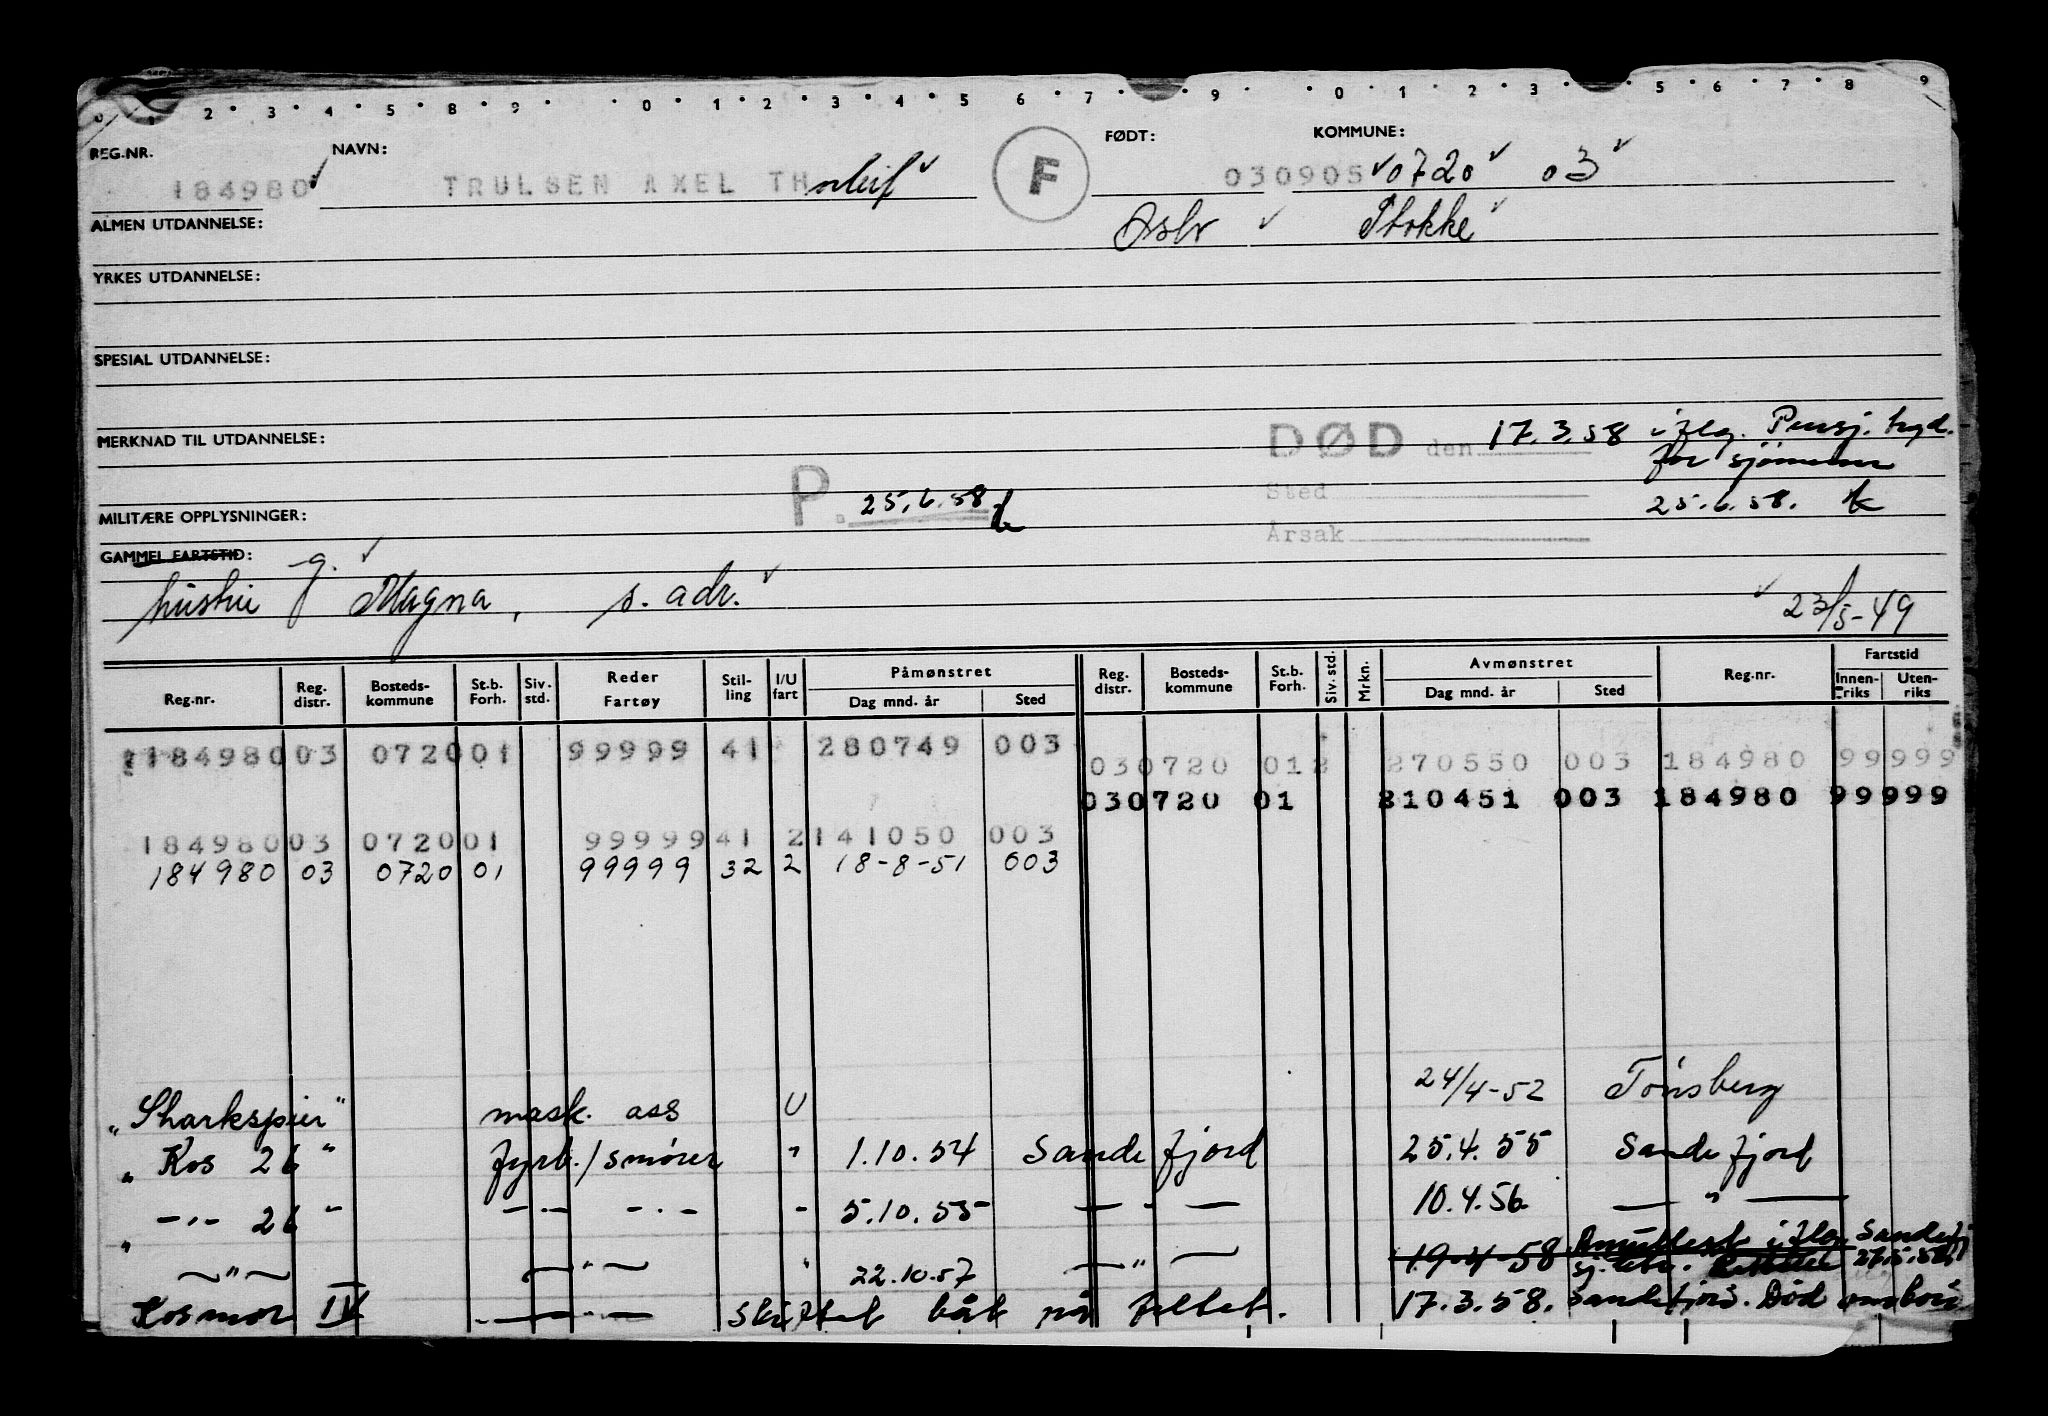 0 1 2 3 4 5 8 9 0 1 2 3 4 5 6 7 9 0 1 2 3 5 6 7 8 9
REG.NR. NAVN: F FØDT: KOMMUNE:
184980 TRULSEN AXEL THorleif 030905 0720 03
ALMEN UTDANNELSE: Oslo Stokke
YRKES UTDANNELSE:
SPESIAL UTDANNELSE:
MERKNAD TIL UTDANNELSE: DØD den 17.3.58 iflg. Pensj. tryd.
for sjømenn
P. 25.6.58 Sted 25.6.58.
MILITÆRE OPPLYSNINGER:
Årsak
GAMMEL FARTSTID: g.
hustru Magna, s. adr. 23/5-49
Påmønstret Avmønstret Fartstid
Reg.nr. Reg. distr. Bosteds-kommune St.b. Forh. Siv. std. Reder Fartøy Stil-ling I/U fart Dag mnd. år Sted Reg. distr. Bosteds-kommune St.b. Forh. Siv. std. Mrkn. Dag mnd. år Sted Reg.nr. Innen-riks Uten-riks
184980 03 0720 01 99999 41 280749 003
030720 012 270550 003 184980 99999
030720 01 210451 003 184980 99999
184980 03 0720 01 99999 41 2 141050 003
184980 03 0720 01 99999 32 2 18-8-51 003
"Sharkspier" mask. ass U 24/4-52 Tønsberg
"Kos 26" fyrb./smører " 1.10.54 Sandefjord 25.4.55 Sandefjord
" -"- 26" -"- -"- - 5.10.55 - " - 10.4.56 - " -
-"- -"- " 22.10.57 -"- 19-4-58 iflg. Sandefj
Kosmos IV -"- skiftet båt på feltet. 17.3.58. Sandefjord. Død ombord